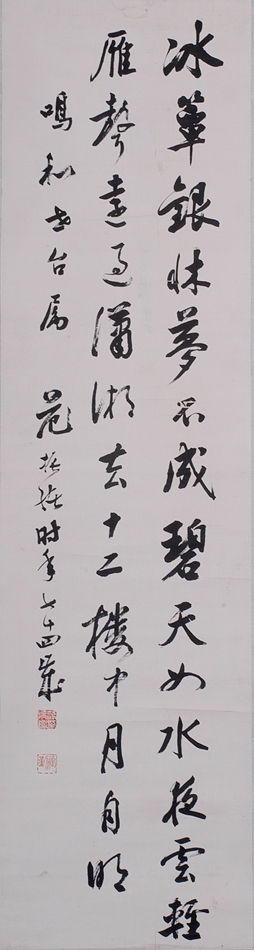 冰簟銀床夢不成碧天如水夜雲輕
雁聲遠過瀟湘去十二樓中月自明
鳴和世台屬 范振緒時年七十四歲